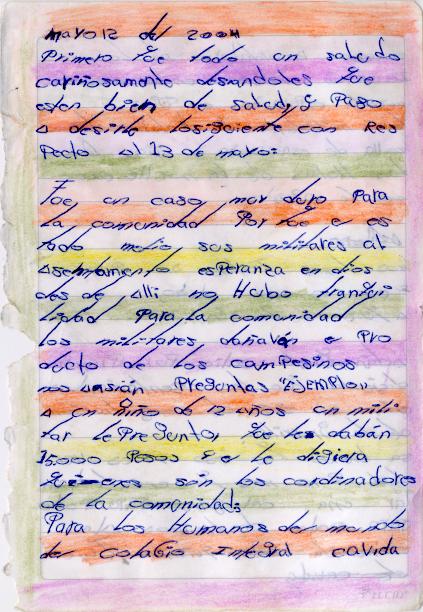 mayo 12 del 2004
Primero que todo un saludo
cariñosamente desiandoles que
esten bien de salud, y Paso
a desirle losiguiente con Res
Pecto al 13 de mayo:
Fue un caso muy duro Para
la comunidad Por que el es
tado metio sus militares al
asentamiento esperanza en dios
des de alli no Hubo tranqui
lidad Para la comunidad
los militares dañaván el Pro
ducto de los campesinos
nos asián Preguntas "Ejemplo"
a un niño de 12 años un mili
tar le Pregunto, que les dabán
15.000 Pesos que le digiera
quienes són los cordinadores
de la comunidad:
Para los Humanos del mundo
del colegio Integral cavida